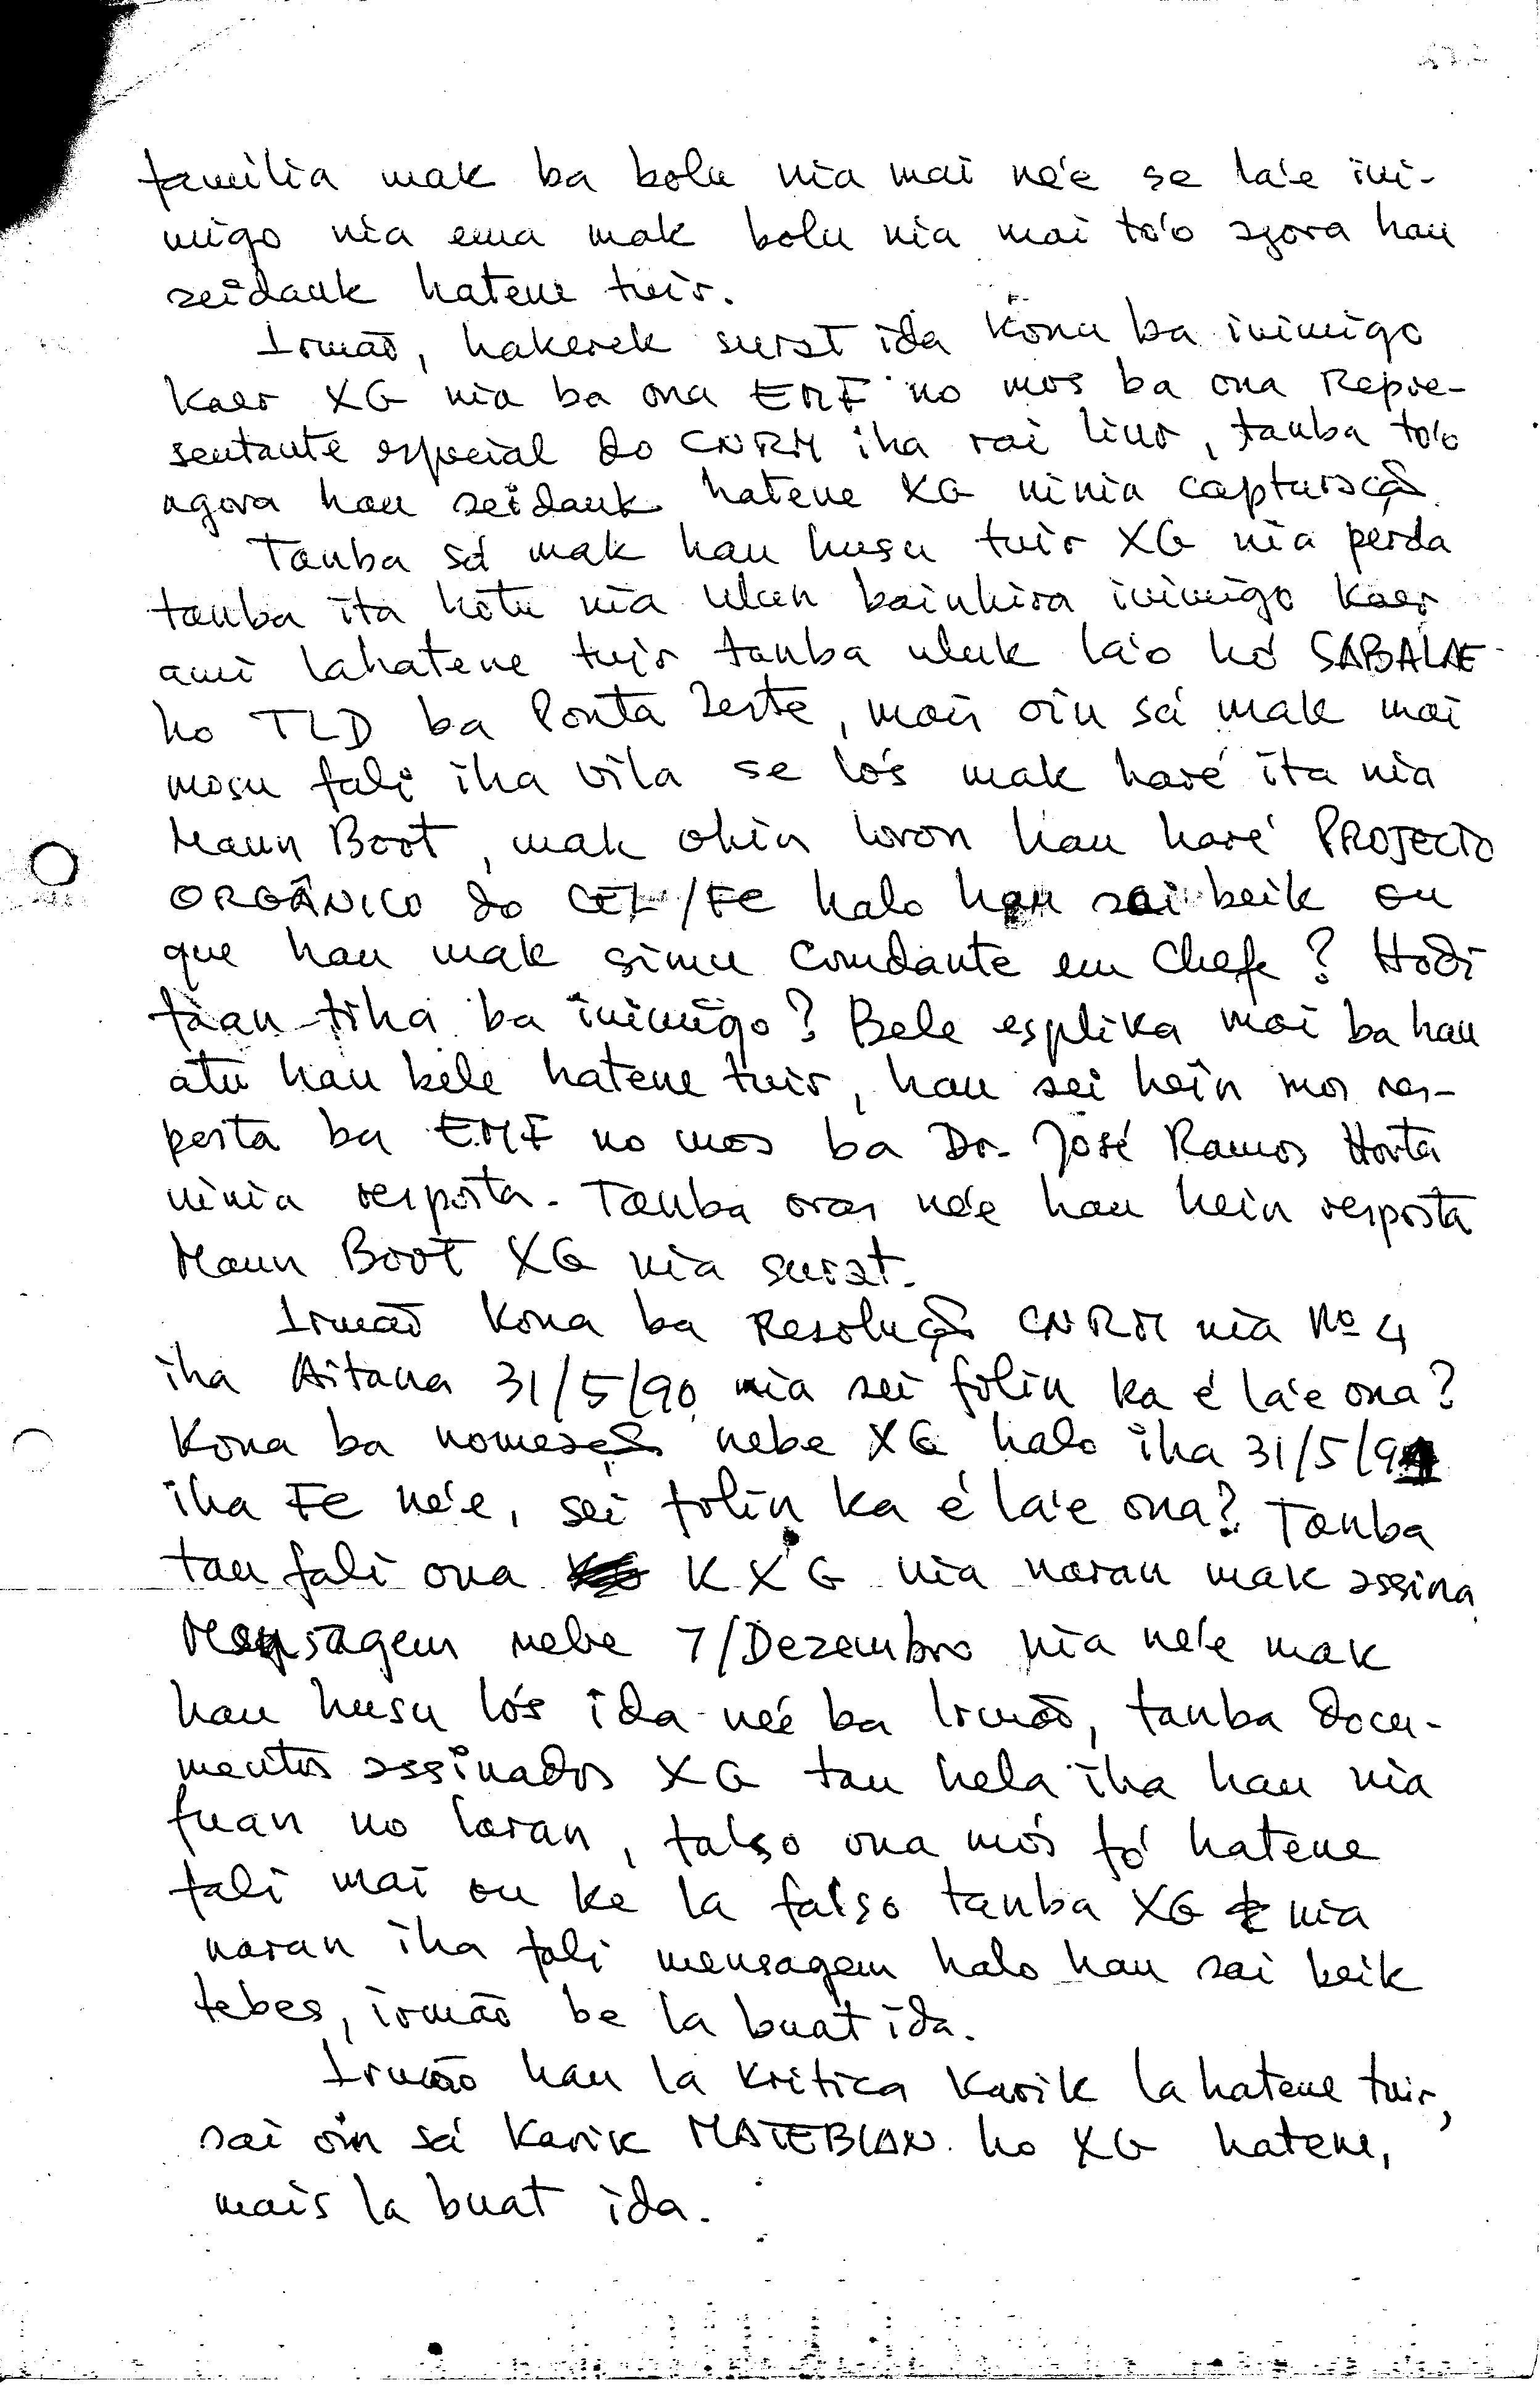 familia mak ba bolu nia mai ne'e se la'e ini-
migo nia ema mak bolu nia mai to'o agora hau
seidauk hatene tuir.
Irmão, hakerek surat ida kona ba inimigo
kaer XG nia ba ona EMF no mos ba ona Repre-
sentante especial do CNRM iha rai liur, tanba to'o
agora hau seidauk hatene XG ninia capturação.
Tanba sá mak hau husu tuir XG nia perda
tanba ita hotu nia ulun bainhira inimigo kaer
ami lahatene tuir tanba uluk la'o hó SABALAE
ho TLD ba Ponta Leste, mais oin sá mak mai
mosu fali iha vila se lo's mak haré ita nia
Maun Boot, mak ohin loron hau haré PROJECTO
ORGÂNICO do CEL/FC halo hau sai beik ou
que hau mak simu Comdante em Chefe? Hodi
faan tiha ba inimigo? Bele esplika mai ba hau
atu hau bele hatene tuir, hau sei hein mos res-
posta ba EMF no mos ba Dr. José Ramos Horta
ninia resposta. Tanba oras ne'e hau hein resposta
Maun Boot XG nia surat.
Irmão kona ba Resolução CNRM nia Nº 4
iha Aitana 31/5/90 nia sei folin ka é la'e ona?
Kona ba nomeação nebe XG halo iha 31/5/91
iha FC ne'e, sei folin ka é la'e ona? Tanba
tau fali ona KXG nia naran mak assina
Mensagem nebe 7/Dezembro nia ne'e mak
hau husu lo's ida ne'é ba Irmão, tanba docu-
mentos assinados XG tau hela iha hau nia
fuan no laran, falso ona mós fó hatene
fali mai ou ke la falso tanba XG nia
naran iha fali mensagem halo hau sai beik
tebes, irmão be la buat ida.
Irmão hau la kritica karik la hatene tuir,
sai oin sá karik MATEBIAN ho XG hatene,
mais la buat ida.